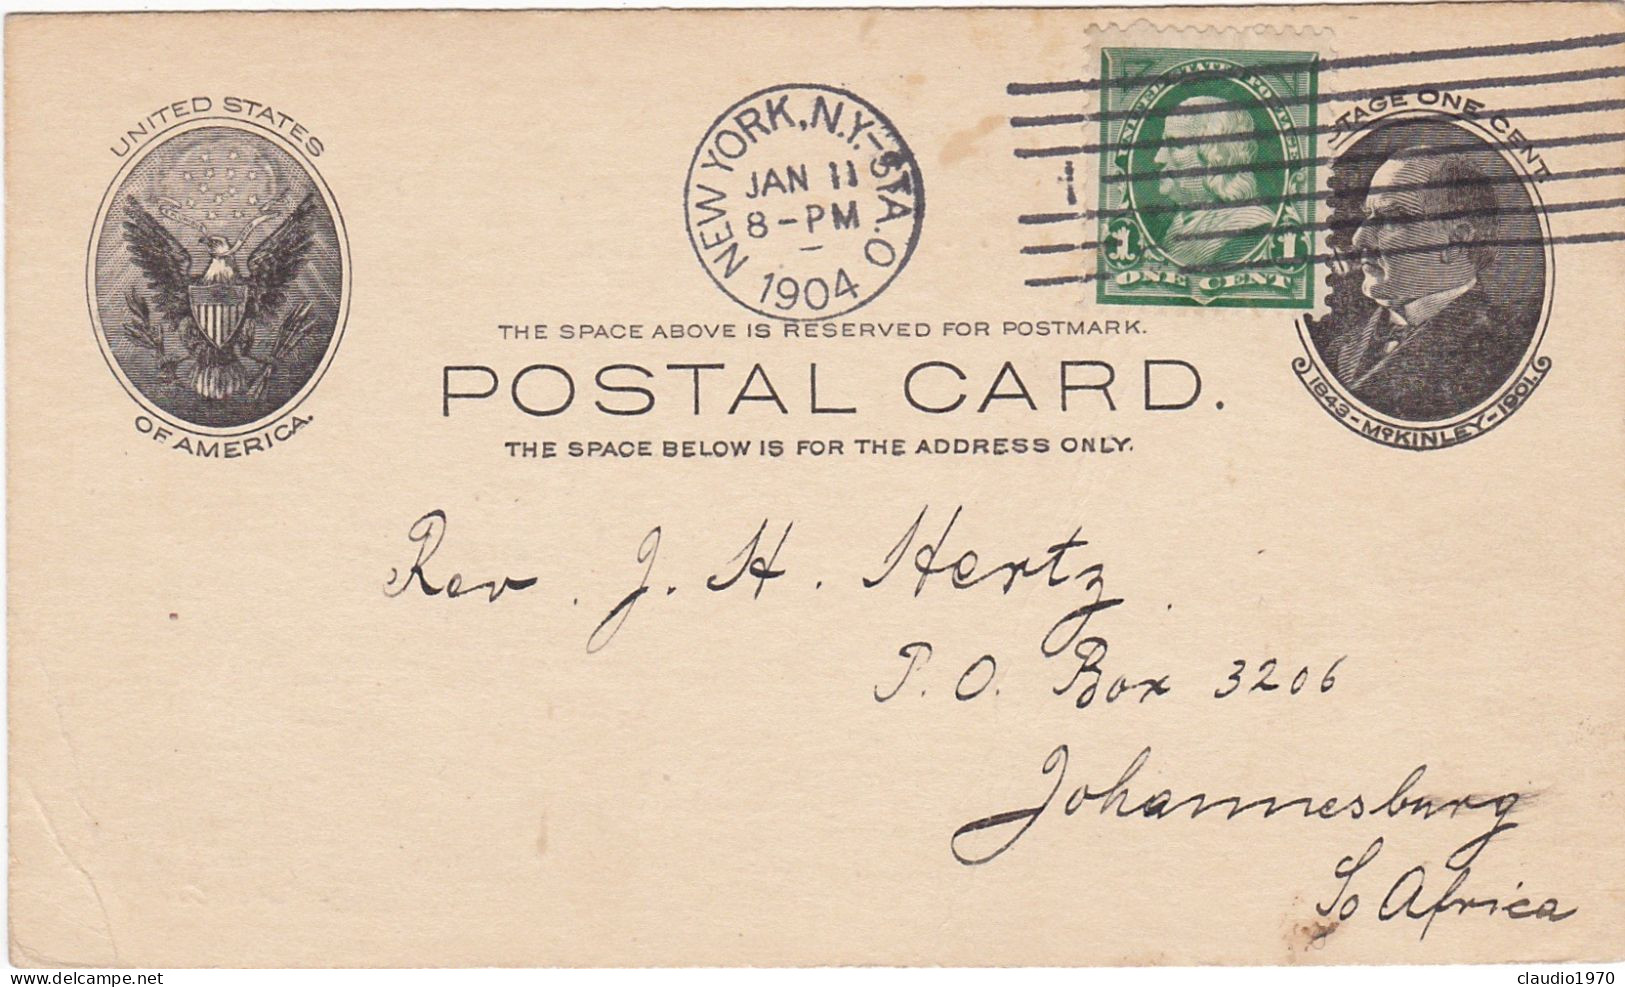 UNITED STATES
OF AMERICA.
NEW YORK, N.Y.-STA.O
JAN 11
8-PM
1904
UNITED STATES POSTAGE
1 1
ONE CENT
TAGE ONE CENT.
1843-McKINLEY-1901.
THE SPACE ABOVE IS RESERVED FOR POSTMARK.
POSTAL CARD.
THE SPACE BELOW IS FOR THE ADDRESS ONLY.
Rev. J. H. Hertz
P. O. Box 3206
Johannesburg
So Africa
claudio1970